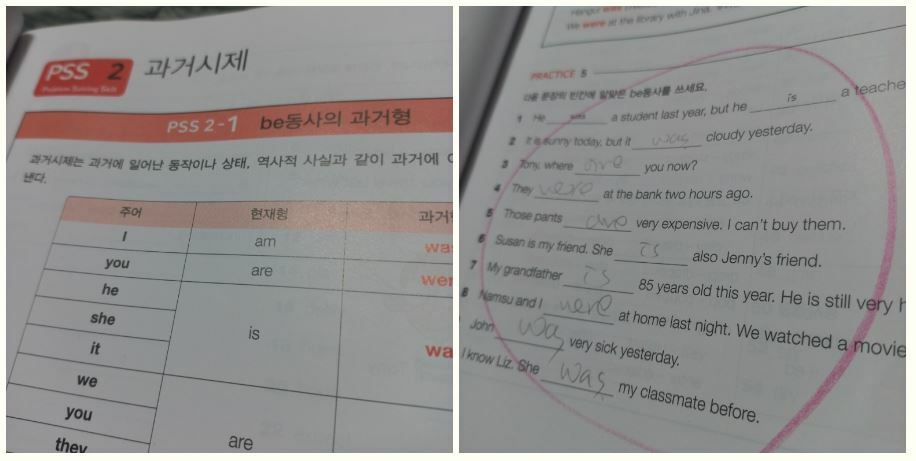 PSS 2 과거시제
Problem Solving Skill
PSS 2-1 be동사의 과거형
과거시제는 과거에 일어난 동작이나 상태, 역사적 사실과 같이 과거에
낸다.
주어 현재형 과거
I am was
you are wer
he
she
it
is wa
we
you
they
are
We were at the library with Jina.
PRACTICE 5
다음 문장의 빈칸에 알맞은 be동사를 쓰세요.
1 He was a student last year, but he is a teache
2 It is sunny today, but it was cloudy yesterday.
3 Tony, where are you now?
4 They were at the bank two hours ago.
5 Those pants are very expensive. I can't buy them.
6 Susan is my friend. She is also Jenny's friend.
7 My grandfather is 85 years old this year. He is still very h
8 Namsu and I were at home last night. We watched a movie
John was very sick yesterday.
I know Liz. She was my classmate before.